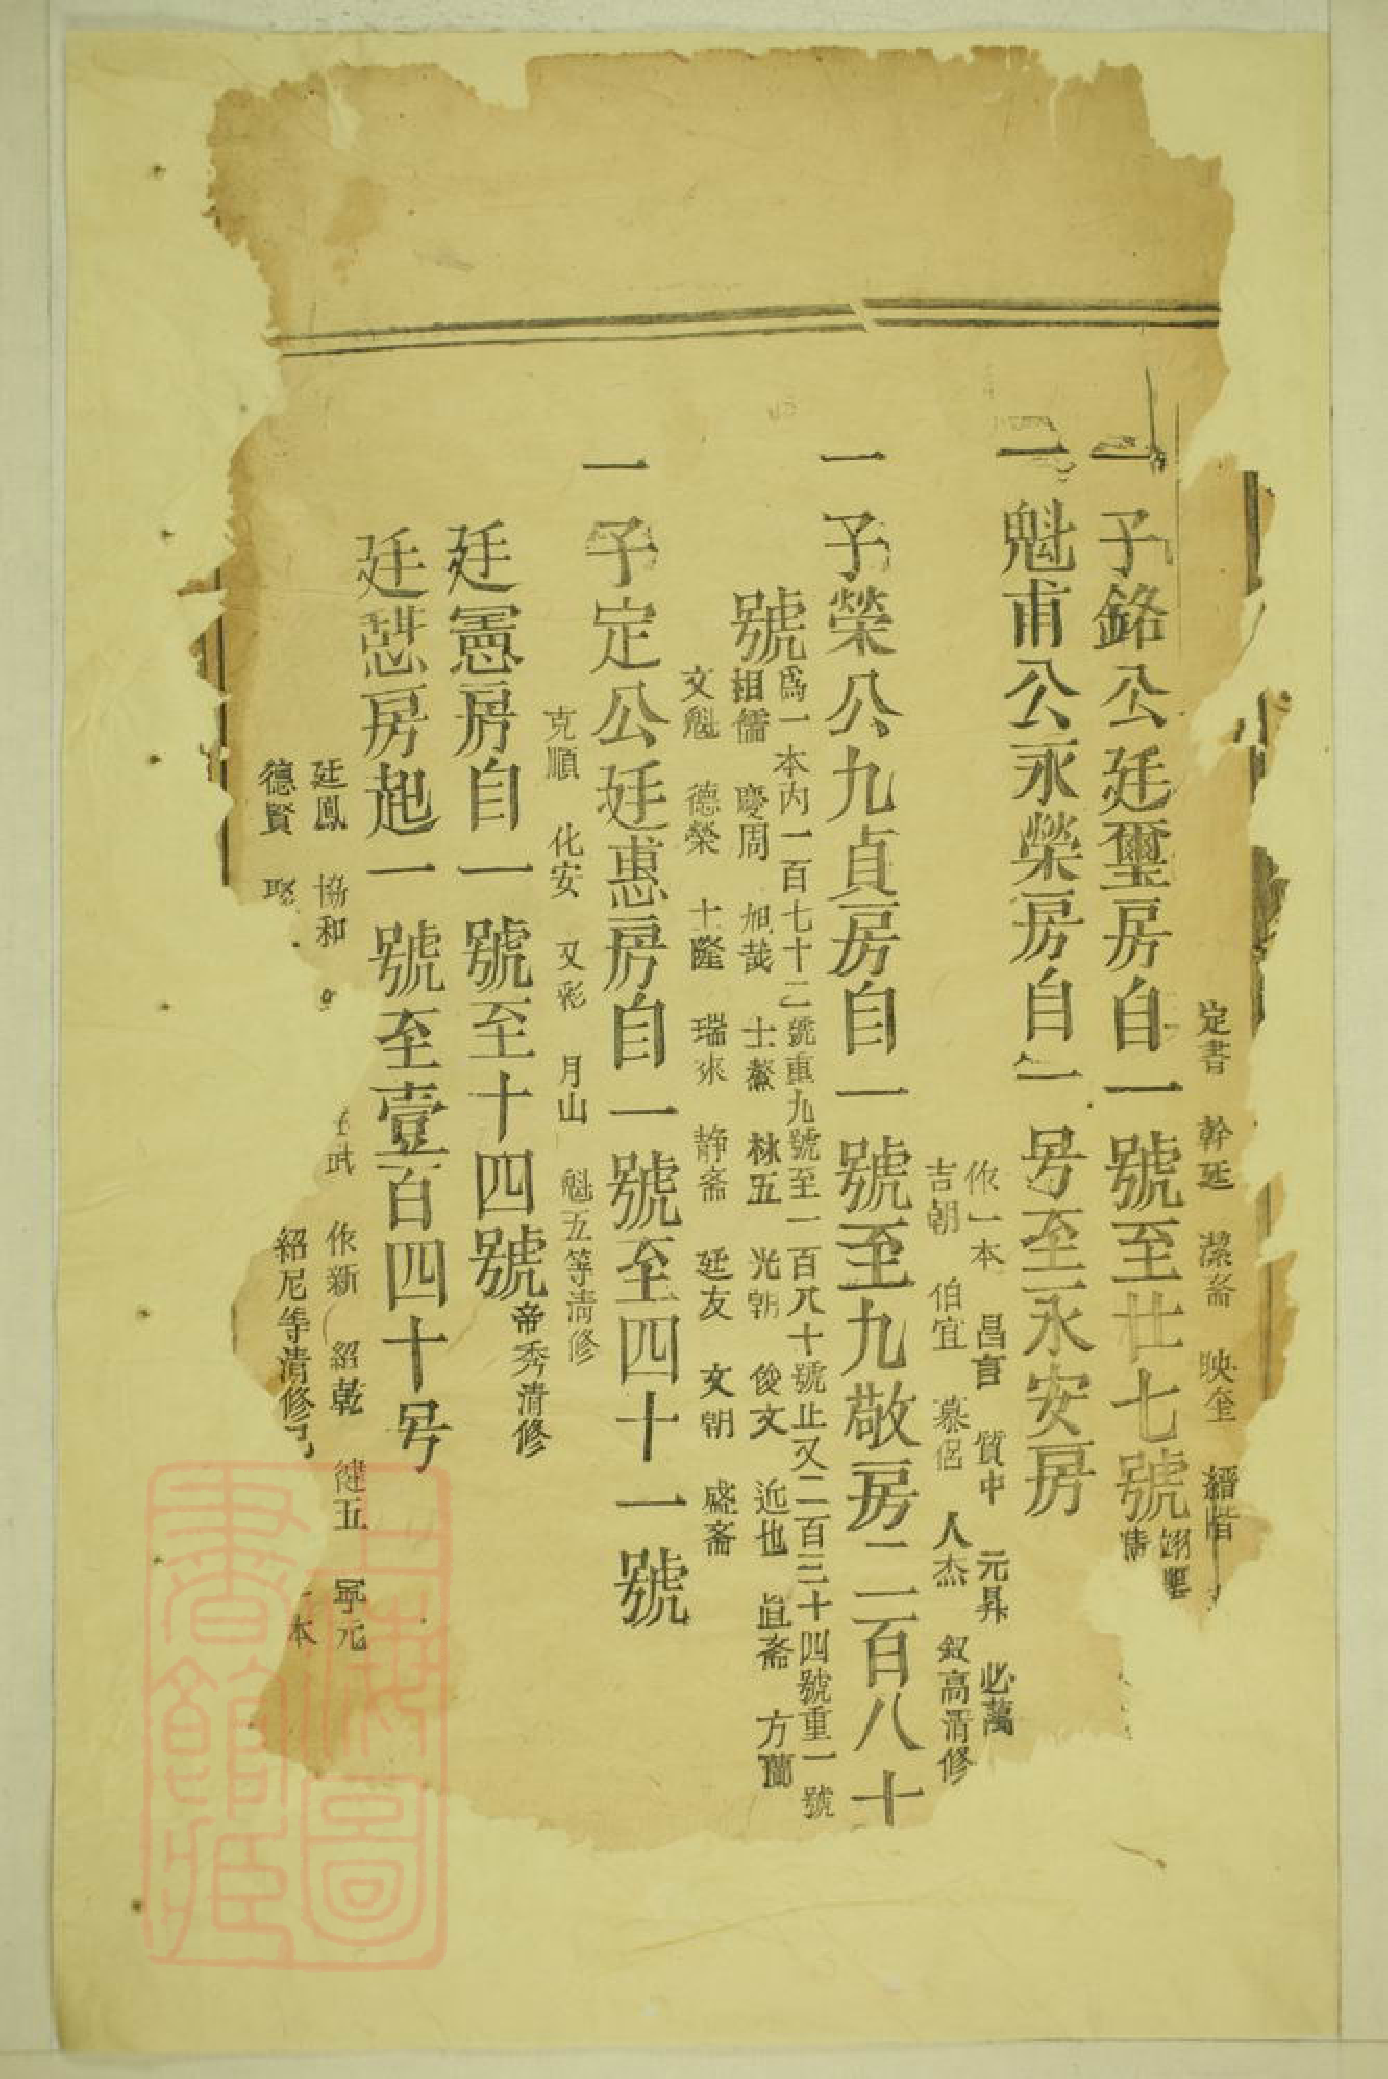 定書 幹廷 潔斋 映奎 縉階
一子銘公廷璽房自一號至廿七號
翊
清
一魁甫公永榮房自一号至永安房
作一本 昌言 質中 元昇 必萬
吉朝 伯宜 慕侶 人杰 叙高清修
一子榮公九貞房自一號至九敬房二百八十
號
爲一本内一百七十二號重九號至一百八十號止又二百三十四號重一號
相儒 慶周 旭哉 士鰲 林五 光朝 俊文 近也 直斋 方蘭
文魁 德榮 士隆 瑞來 静斋 廷友 文朝 盛斋
一子定公廷惠房自一號至四十一號
克順 化安 又彩 月山 魁五等清修
廷憲房自一號至十四號
帝秀清修
廷慧房起一號至壹百四十号
廷鳳 協和 武 作新 紹乾 健五 寧元
德賢 聚 紹尼等清修 一本
上海圖書館藏